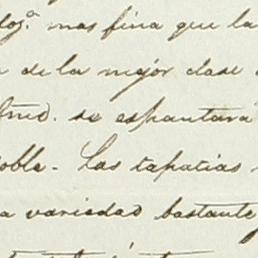 mas fina que la
de la mejor clase
se espantara
oble. Las tapatias
a variedad bastante